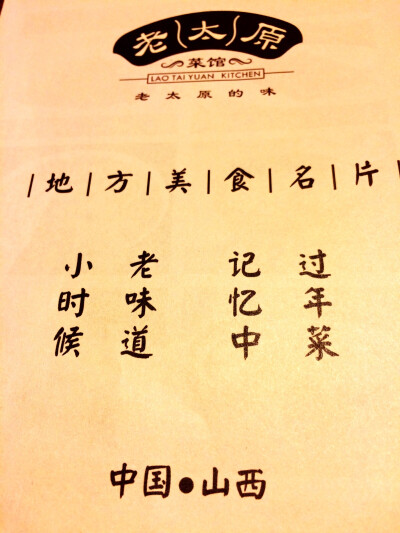 老太原
菜馆
LAO TAI YUAN KITCHEN
老太原的味
|地|方|美|食|名|片|
小时候
老味道
记忆中
过年菜
中国●山西